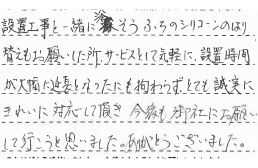 設置工事と一緒に浴そうふちのシリコーンのはり
替えもお願いした所、サービスとして気軽に、設置時間
が大幅に延長となったにも拘わらずとても誠実に
きれいに対応して頂き今後も御社にお願い
して行こうと思いました。ありがとうございました。